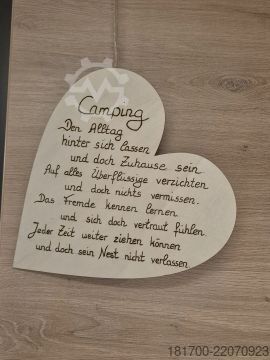 Camping
Den Alltag
hinter sich lassen
und doch Zuhause sein
Auf alles Überflüssige verzichten
und doch nichts vermissen.
Das Fremde kennen lernen
und sich doch vertraut fühlen
Jeder Zeit weiter ziehen können
und doch sein Nest nicht verlassen
181700-22070923